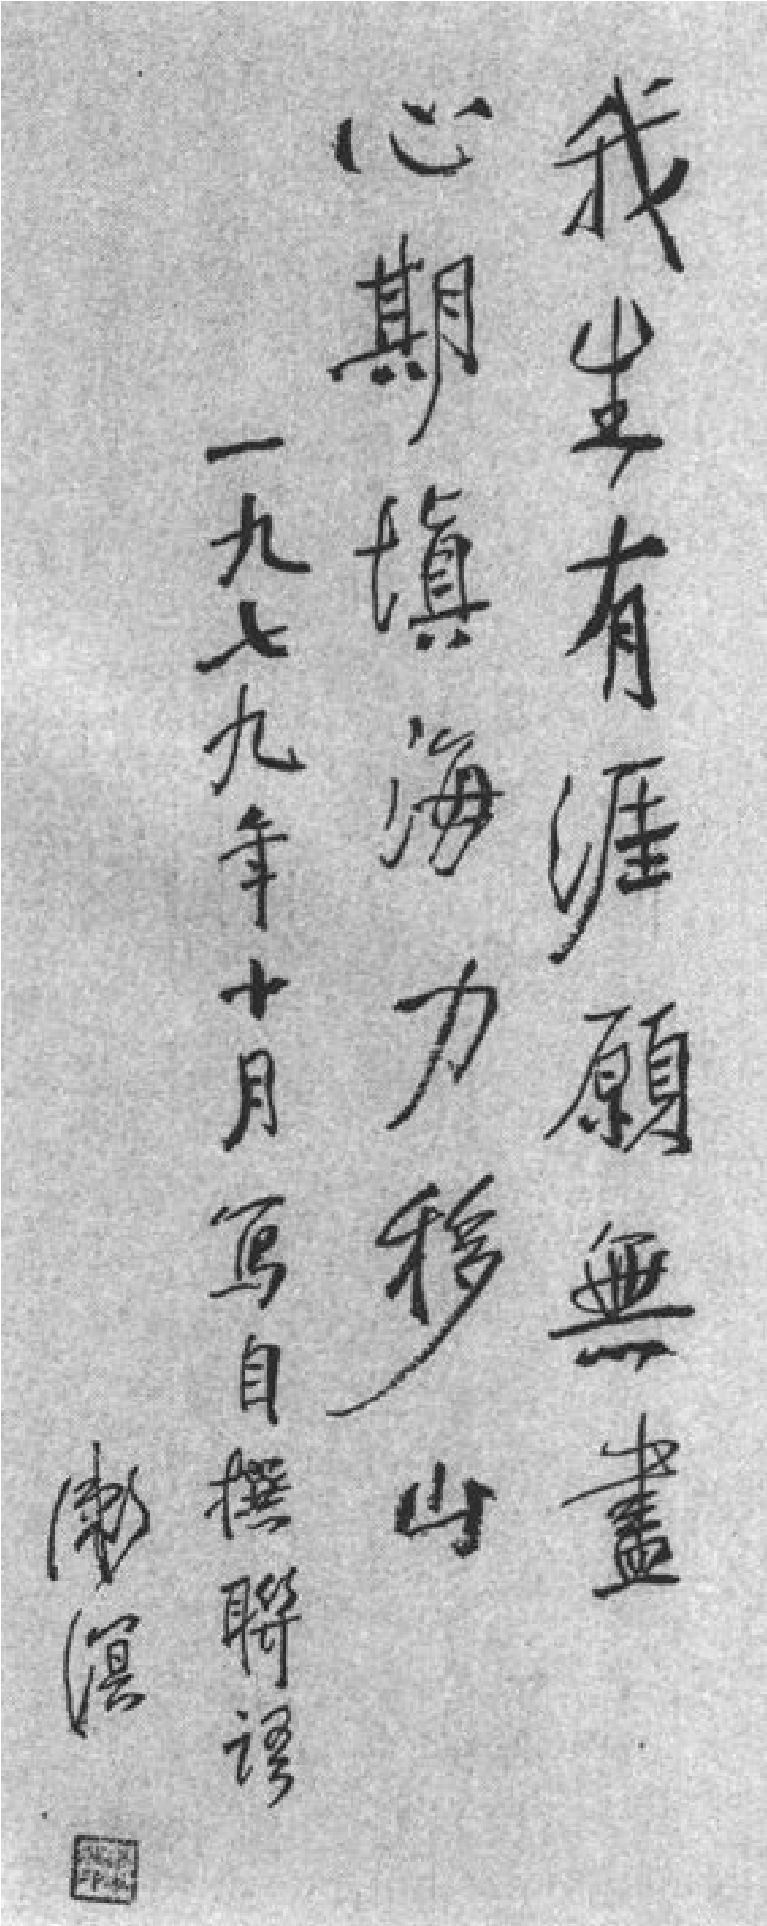 我生有涯願無盡
心期填海力移山
一九七九年十月写自撰聯語
漱溟